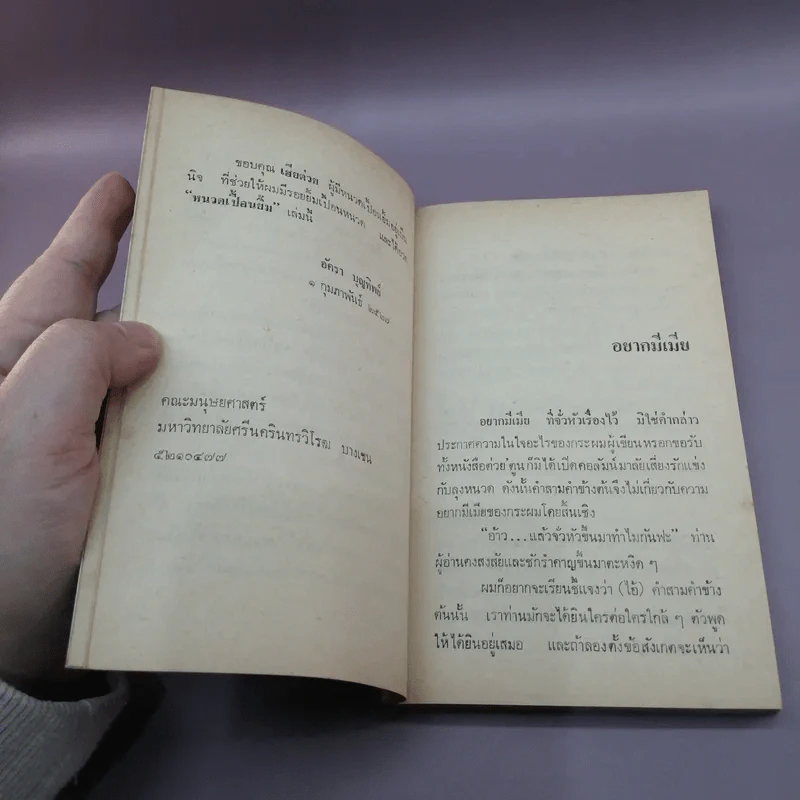 ขอบคุณ เฮียด่วย ผู้มีหนวดเปื้อนยิ้มอยู่เป็น
นิจ ที่ช่วยให้ผมมีรอยยิ้มเปื้อนหนวด และได้รวม
“หนวดเปื้อนยิ้ม” เล่มนี้
อัครา บุญทิพย์
๑ กุมภาพันธ์ ๒๕๒๗
คณะมนุษยศาสตร์
มหาวิทยาลัยศรีนครินทรวิโรฒ บางเขน
๕๒๑๐๔๗๗
อยากมีเมีย
อยากมีเมีย ที่จั่วหัวเรื่องไว้ มิใช่คำกล่าว
ประกาศความในใจอะไรของกระผมผู้เขียนหรอกขอรับ
ทั้งหนังสือต่วย’ตูนก็มิได้เปิดคอลัมน์มาลัยเสี่ยงรักแข่ง
กับลุงหนวด ดังนั้นคำสามคำข้างต้นจึงไม่เกี่ยวกับความ
อยากมีเมียของกระผมโดยสิ้นเชิง
“อ้าว...แล้วจั่วหัวขึ้นมาทำไมกันฟะ” ท่าน
ผู้อ่านคงสงสัยและชักรำคาญขึ้นมาตะหงิด ๆ
ผมก็อยากจะเรียนชี้แจงว่า (ไอ้) คำสามคำข้าง
ต้นนั้น เราท่านมักจะได้ยินใครต่อใครใกล้ ๆ ตัวพูด
ให้ได้ยินอยู่เสมอ และถ้าลองตั้งข้อสังเกตจะเห็นว่า